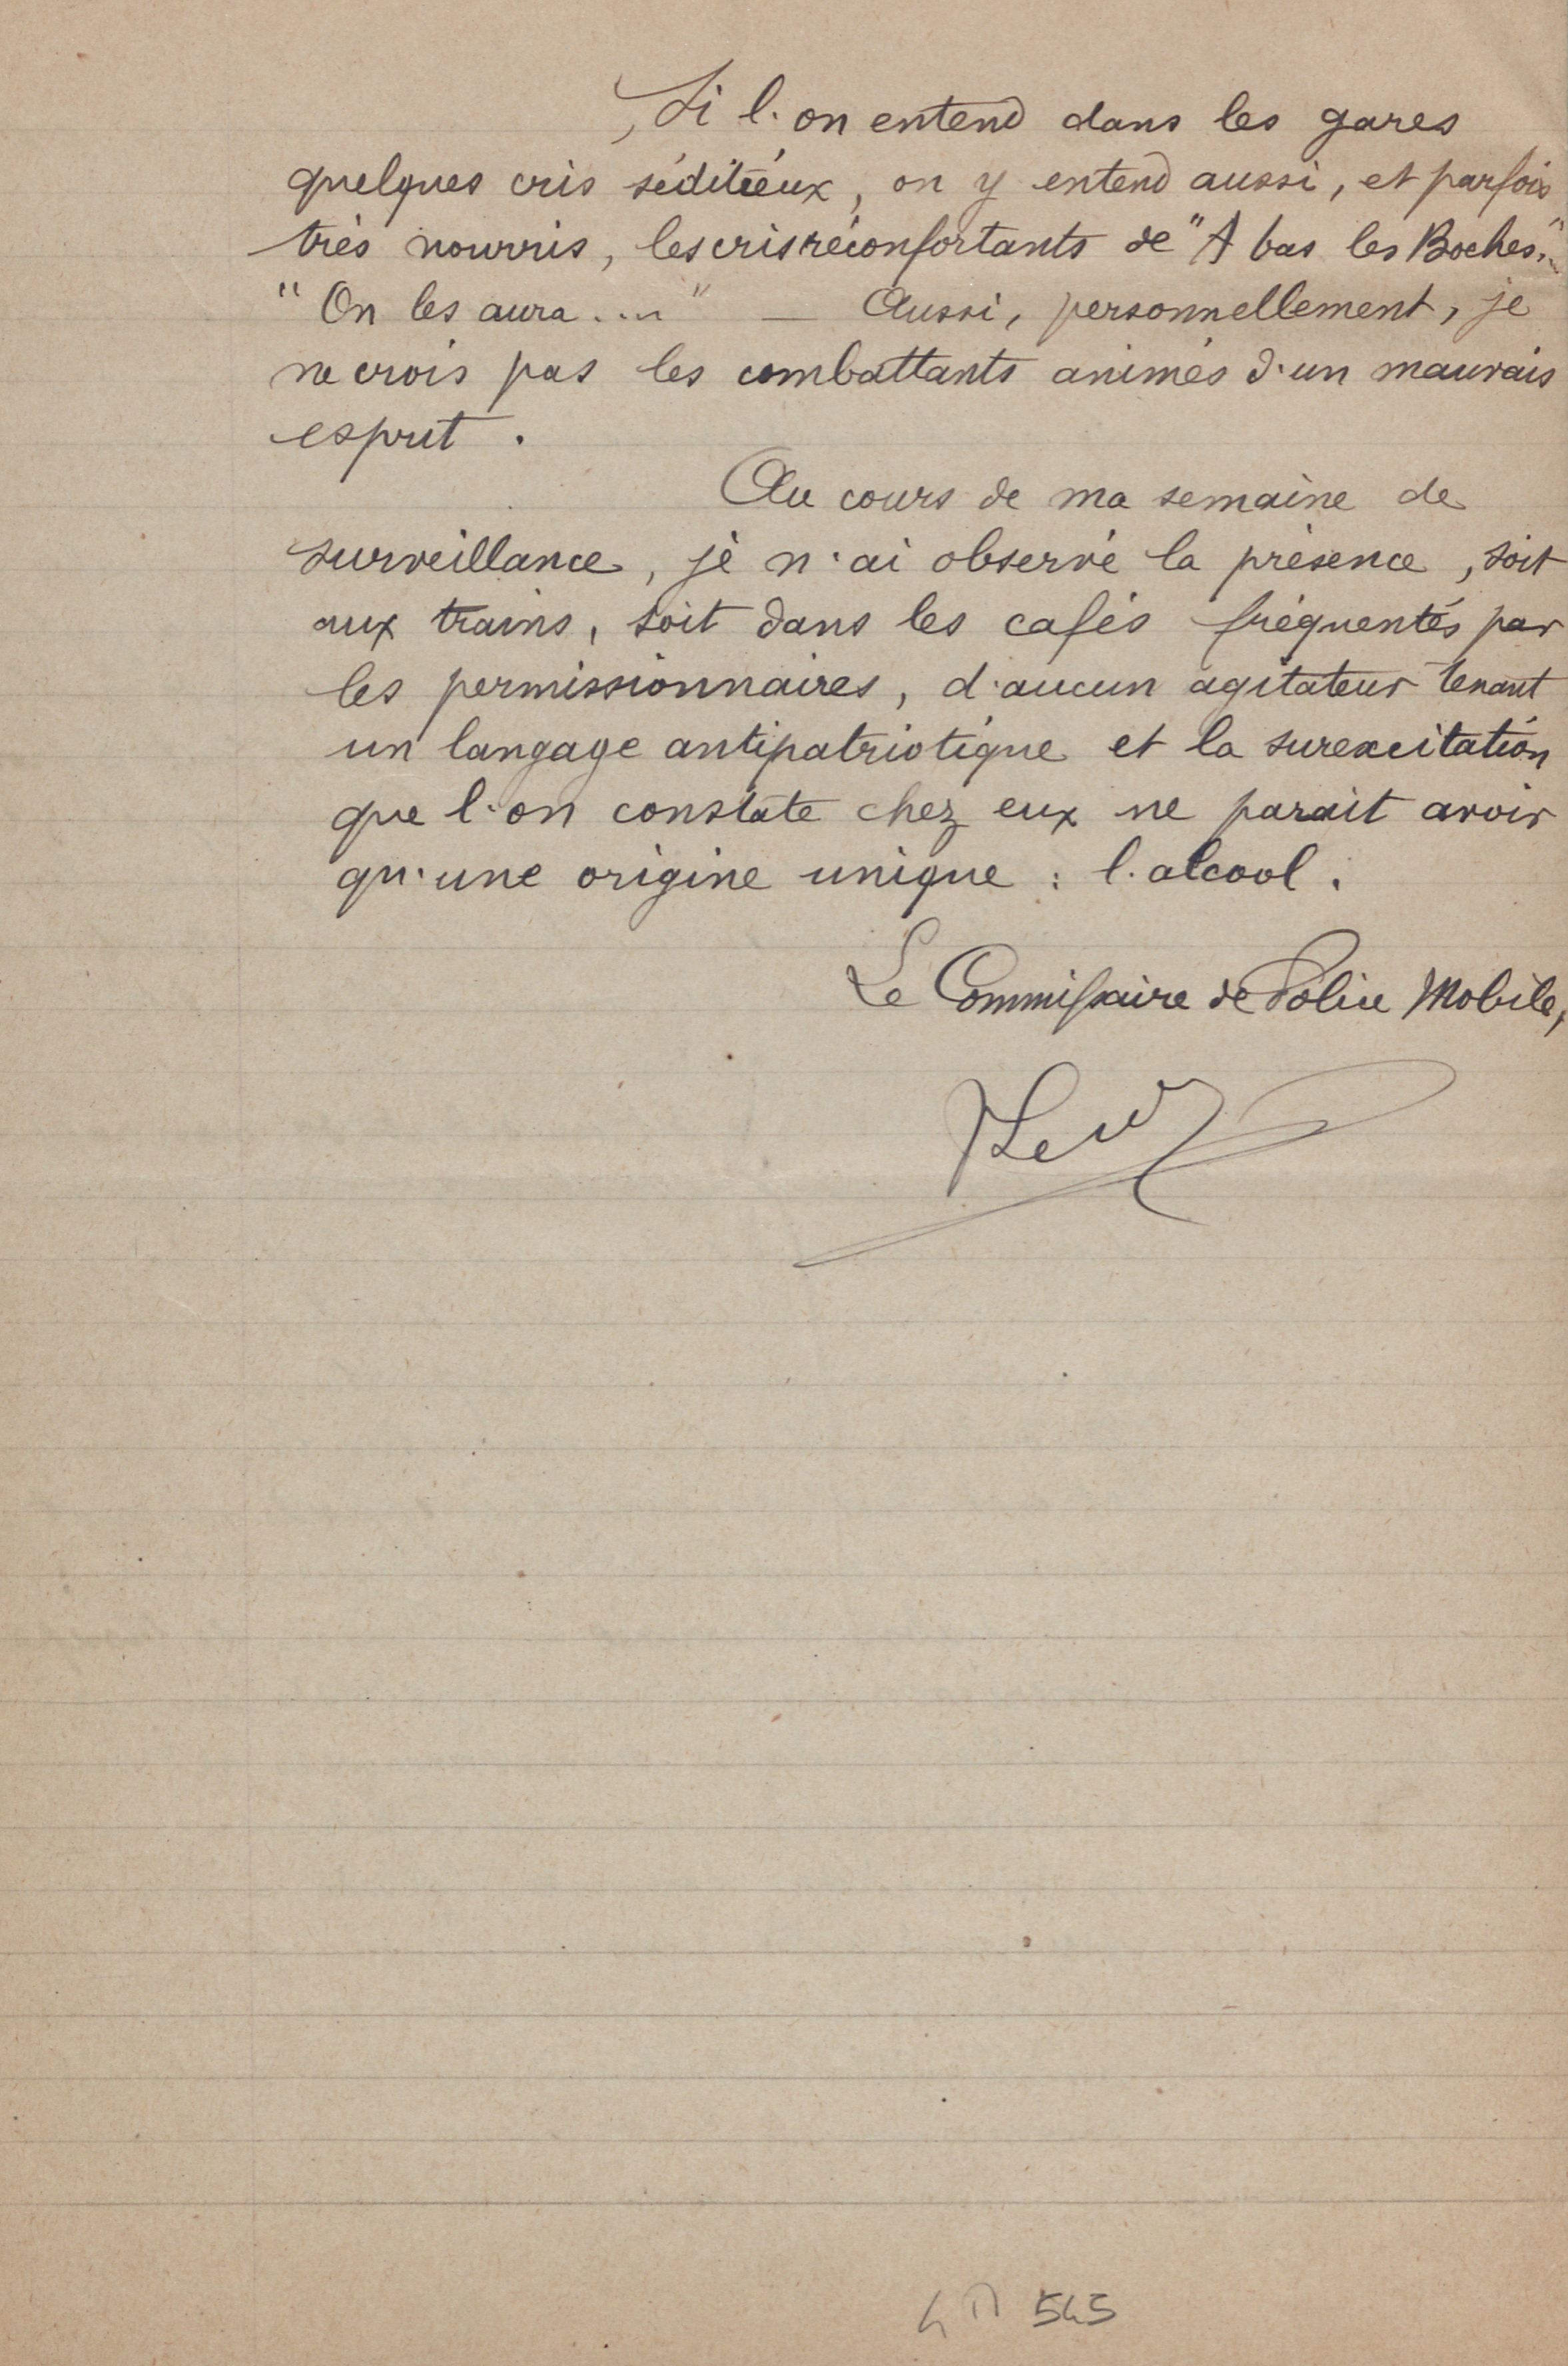 Si l'on entend dans les gares
quelques cris séditieux, on y entend aussi, et parfois
très nourris, les cris réconfortants de "A bas les Boches,"
"On les aura...." — Aussi, personnellement, je
ne crois pas les combattants animés d'un mauvais
esprit.
Au cours de ma semaine de
surveillance, je n'ai observé la présence, soit
aux trains, soit dans les cafés fréquentés par
les permissionnaires, d'aucun agitateur tenant
un langage antipatriotique et la surexcitation
que l'on constate chez eux ne parait avoir
qu'une origine unique : l'alcool.
Le Commissaire de Police Mobile,
545